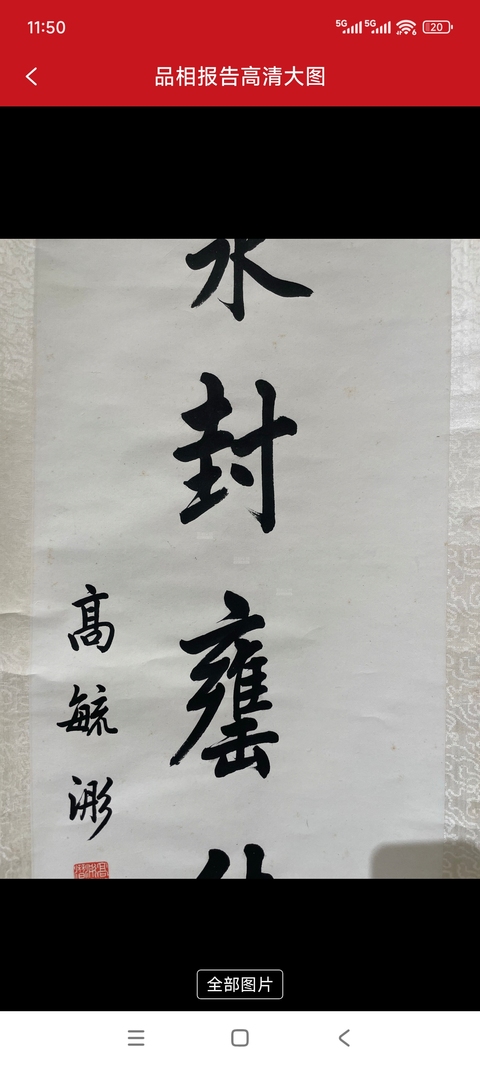 11:50
5G 5G 20
品相报告高清大图
封罋
髙毓浵
全部图片